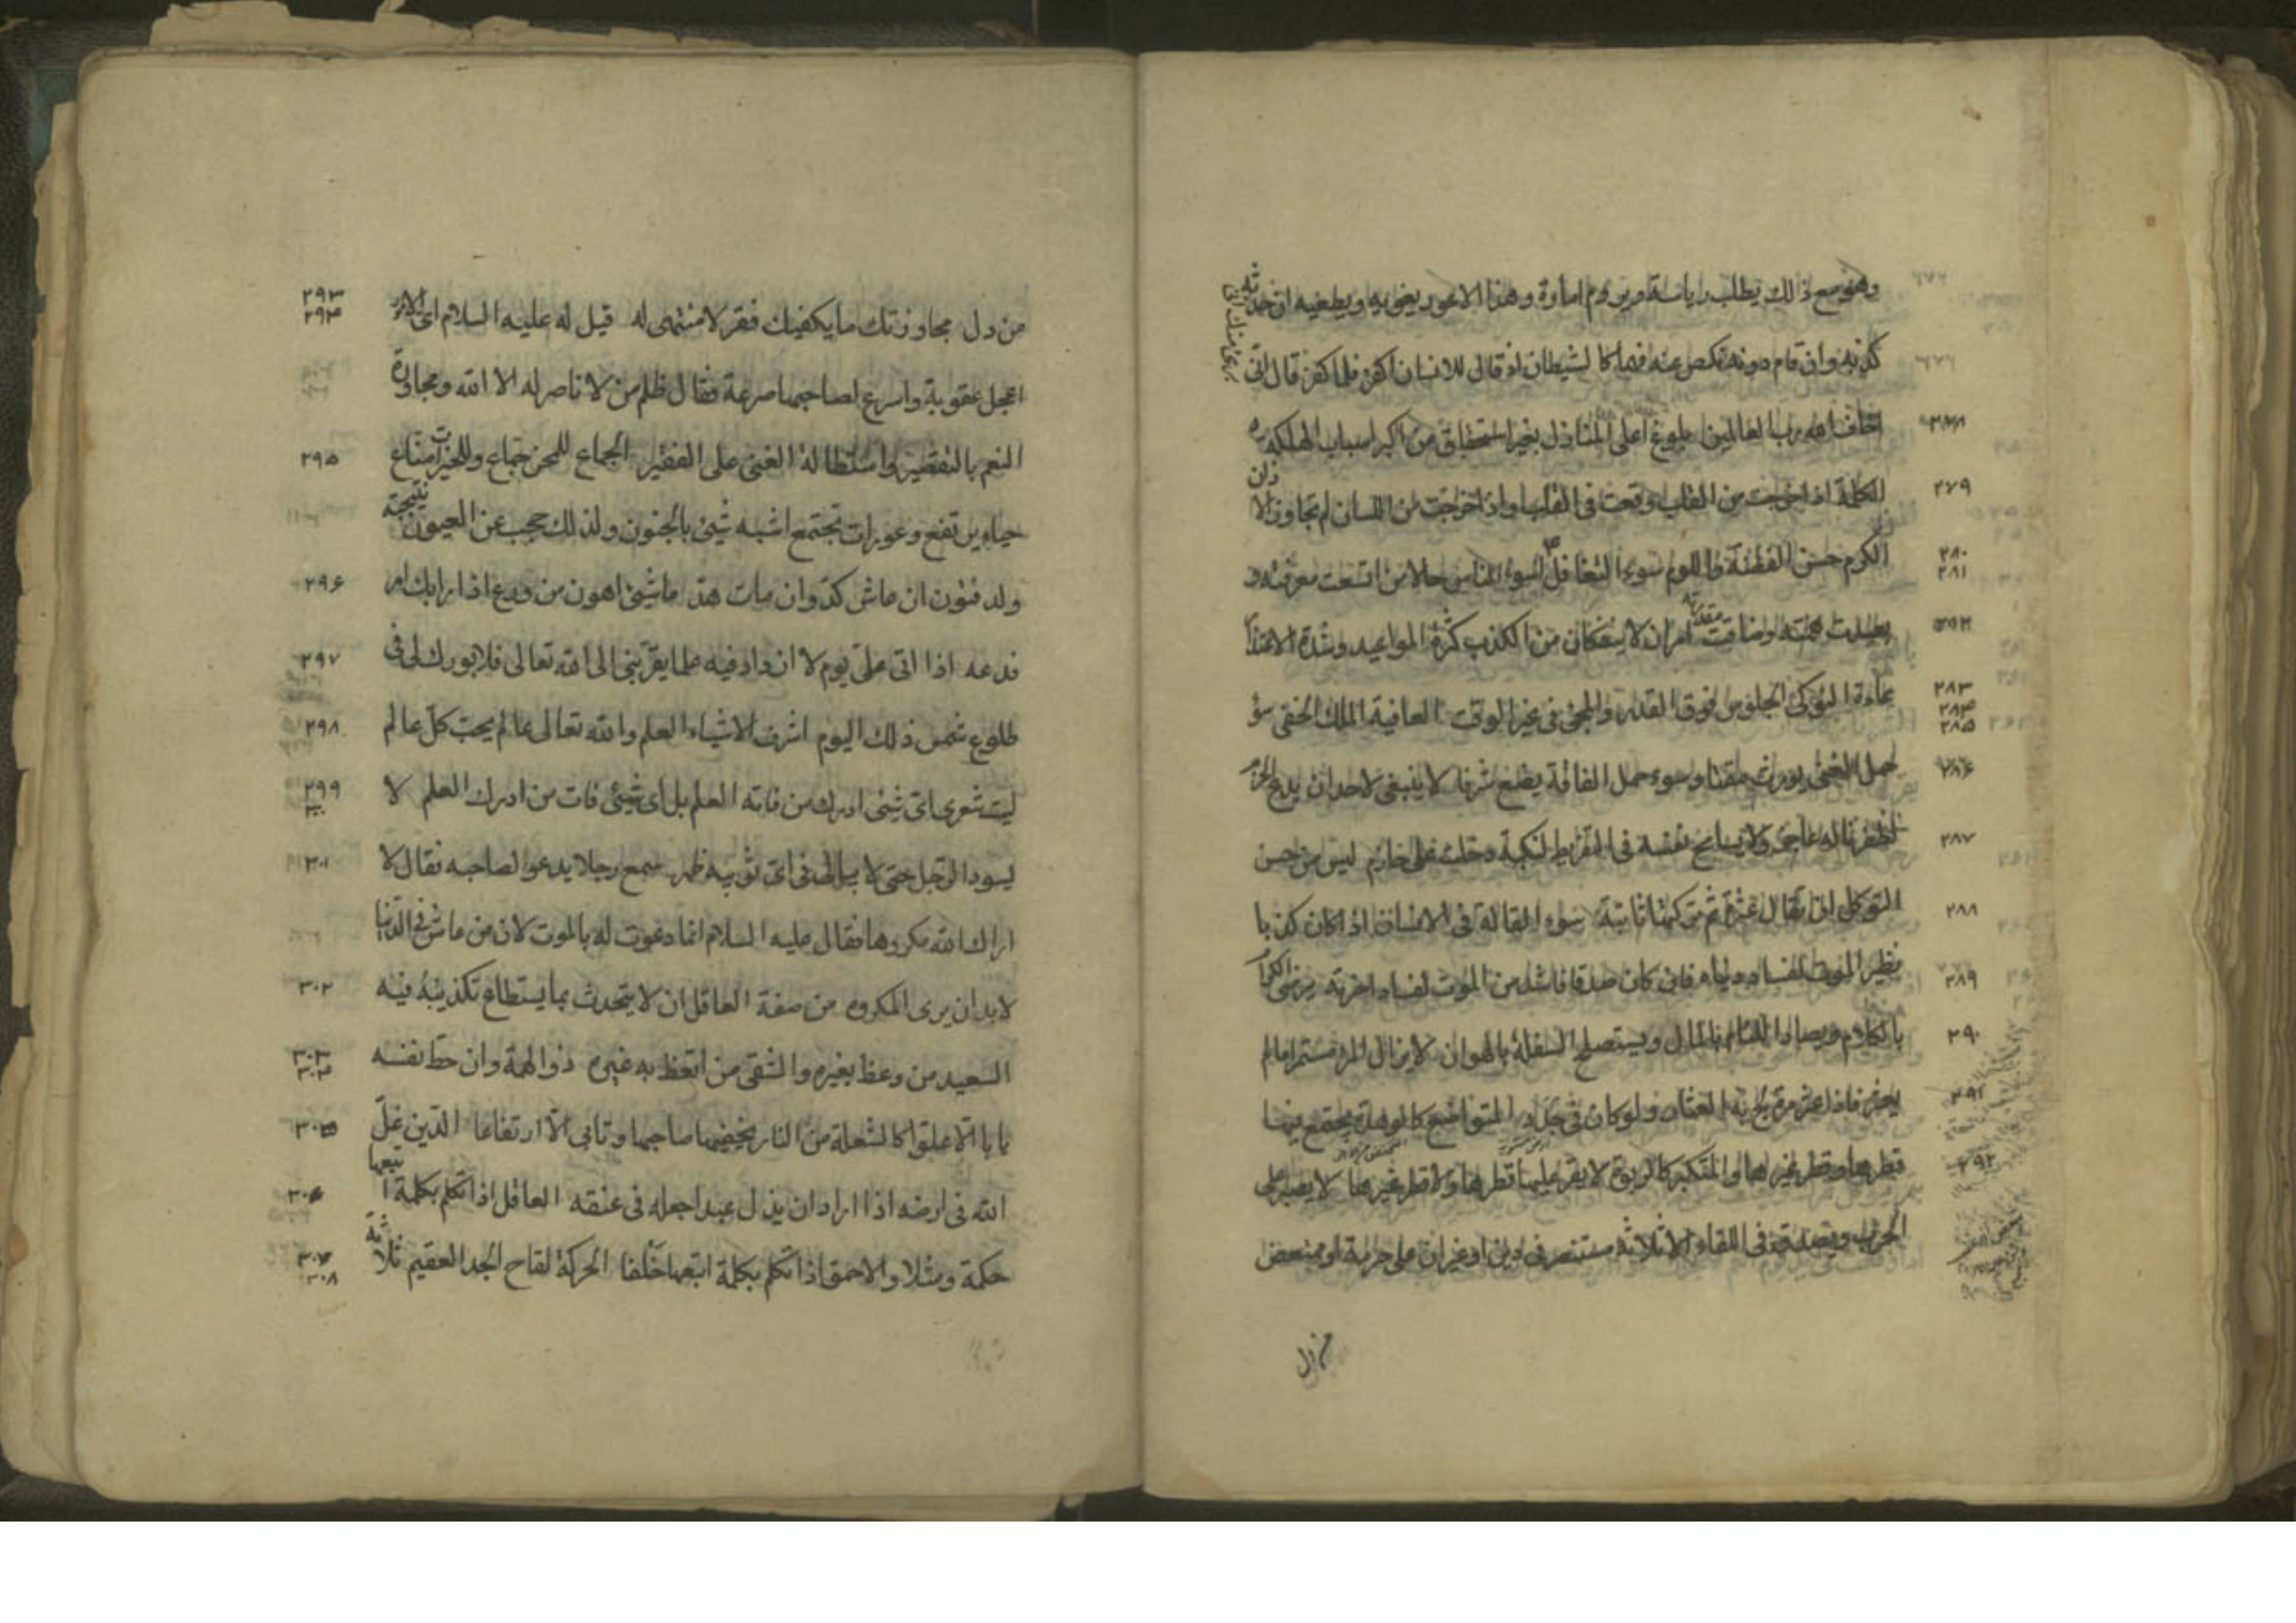 وهو مع ذلك يطلب رياسة ويروم امارة وهذا الاعور يغويه ويطغيه ان حدثه
كذبه وان قام دونه نكص عنه فهما كالشيطان اذ قال للانسان اكفر فلما كفر قال انى
برئ منك انى
٢٧٨ اخاف الله رب العالمين بلوغ اعلى المنازل بغير استحقاق من اكبر اسباب الهلكه
٢٧٩ الكلمة اذا خرجت من القلب وقعت فى القلب واذا خرجت من اللسان لم تجاوز الاذان
٢٨٠ ٢٨١ الكرم حسن الفطنة واللوم سوء التغافل اسوء الناس حالا من اتسعت معرفته و
٢٨٢ بعدت همته وضاقت مقدرته امران لا ينفكان من الكذب كثرة المواعيد وشدة الاعتذار
٢٨٣ ٢٨٤ ٢٨٥ عادة النوكى الجلوس فوق القدر والمجئ فى غير الوقت العافية الملك الخفى سؤ
٢٨٦ حمل الغنى يورث مقتا وسوء حمل الفاقة يضع شرفا لا ينبغى لاحد ان يدع الحزم
٢٨٧ لظفر ناله عاجز ولا يسامح نفسه فى التفريط لنكبة دخلت على حازم ليس من حسن
٢٨٨ التوكل ان يقال عثرة ثم يركبها ثانية سوء القالة فى الانسان اذا كان كذبا
٢٨٩ نظير الموت لفساد دنياه فان كان صدقا فاشد من الموت لفساد اخرته يرضى الكرام
٢٩٠ بالكلام ويصاد اللئام بالمال ويستصلح السفلة بالهوان لا يزال المرء مستمرا ما لم
٢٩١ يعثر فاذا عثر مرة لج به العثار ولو كان فى جدد المتواضع كالوهدة يجتمع فيها
٢٩٢ قطرها وقطر غيرها والمتكبر كالربوة لا يقر عليها قطرها ولا قطر غيرها لا يصبر على
الحرب ويصدق فى اللقاء الا ثلاثة مستبصر فى دين او غيران على حرمة او ممتعض
من ذل
٢٩٣ ٢٩٤ من ذل مجاوزتك ما يكفيك فقر لا منتهى له قيل له عليه السلام اى الامور
اعجل عقوبة واسرع لصاحبها صرعة فقال ظلم من لا ناصر له الا الله ومجاورة
٢٩٥ النعم بالتقصير واستطالة الغنى على الفقير الجماع للمحن جماع وللخيرات مناع
حياء يرتفع وعورات تجتمع اشبه شيئ بالجنون ولذلك حجب عن العيون نتيجته
٢٩٦ ولد فتون ان عاش كدّ وان مات هدّ ما شيئ اهون من ورع اذا رابك امر
٢٩٧ فدعه اذا اتى علىّ يوم لا ازداد فيه علما يقرّبنى الى الله تعالى فلا بورك لى فى
٢٩٨ طلوع شمس ذلك اليوم اشرف الاشياء العلم والله تعالى عالم يحبّ كلّ عالم
٢٩٩ ٣٠٠ ليت شعرى اىّ شيئ ادرك من فاته العلم بل اى شيئ فات من ادرك العلم لا
٣٠١ يسود الرّجل حتى لا يبالى فى اىّ ثوبيه ظهر سمع رجلا يدعو لصاحبه فقال لا
اراك الله مكروها فقال عليه السلام انما دعوت له بالموت لان من عاش فى الدّنيا
٣٠٢ لابد ان يرى المكروه من صفة العاقل ان لا يتحدث بما يستطاع تكذيبه فيه
٣٠٣ ٣٠٤ السعيد من وعظ بغيره والشقى من اتعظ به غيره ذو الهمة وان حط نفسه
٣٠٥ يابا الّا علوّا كالشعلة من النار يخفيضها صاحبها وتابى الّا ارتفاعا الدّين غلّ
٣٠٦ الله فى ارضه اذا اراد ان يذل عبدا جعله فى عنقه العاقل اذا تكلم بكلمة اتبعها
٣٠٧ ٣٠٨ حكمة ومثلا والاحمق اذا تكلم بكلمة اتبعها حلفا الحركة لقاح الجد العقيم ثلاثة